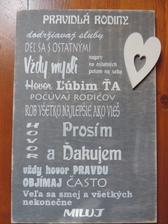 PRAVIDLÁ RODINY
dodržiavaj sľuby
DEĽ SA S OSTATNÝMI
Vždy mysli
najprv
na ostatných
potom na seba
Hovor ĽÚBIM ŤA
POČÚVAJ RODIČOV
ROB VŠETKO NAJLEPŠIE AKO VIEŠ
HOVOR
Prosím
a Ďakujem
vždy hovor PRAVDU
OBJÍMAJ ČASTO
Veľa sa smej a všetkých
nekonečne
MILUJ